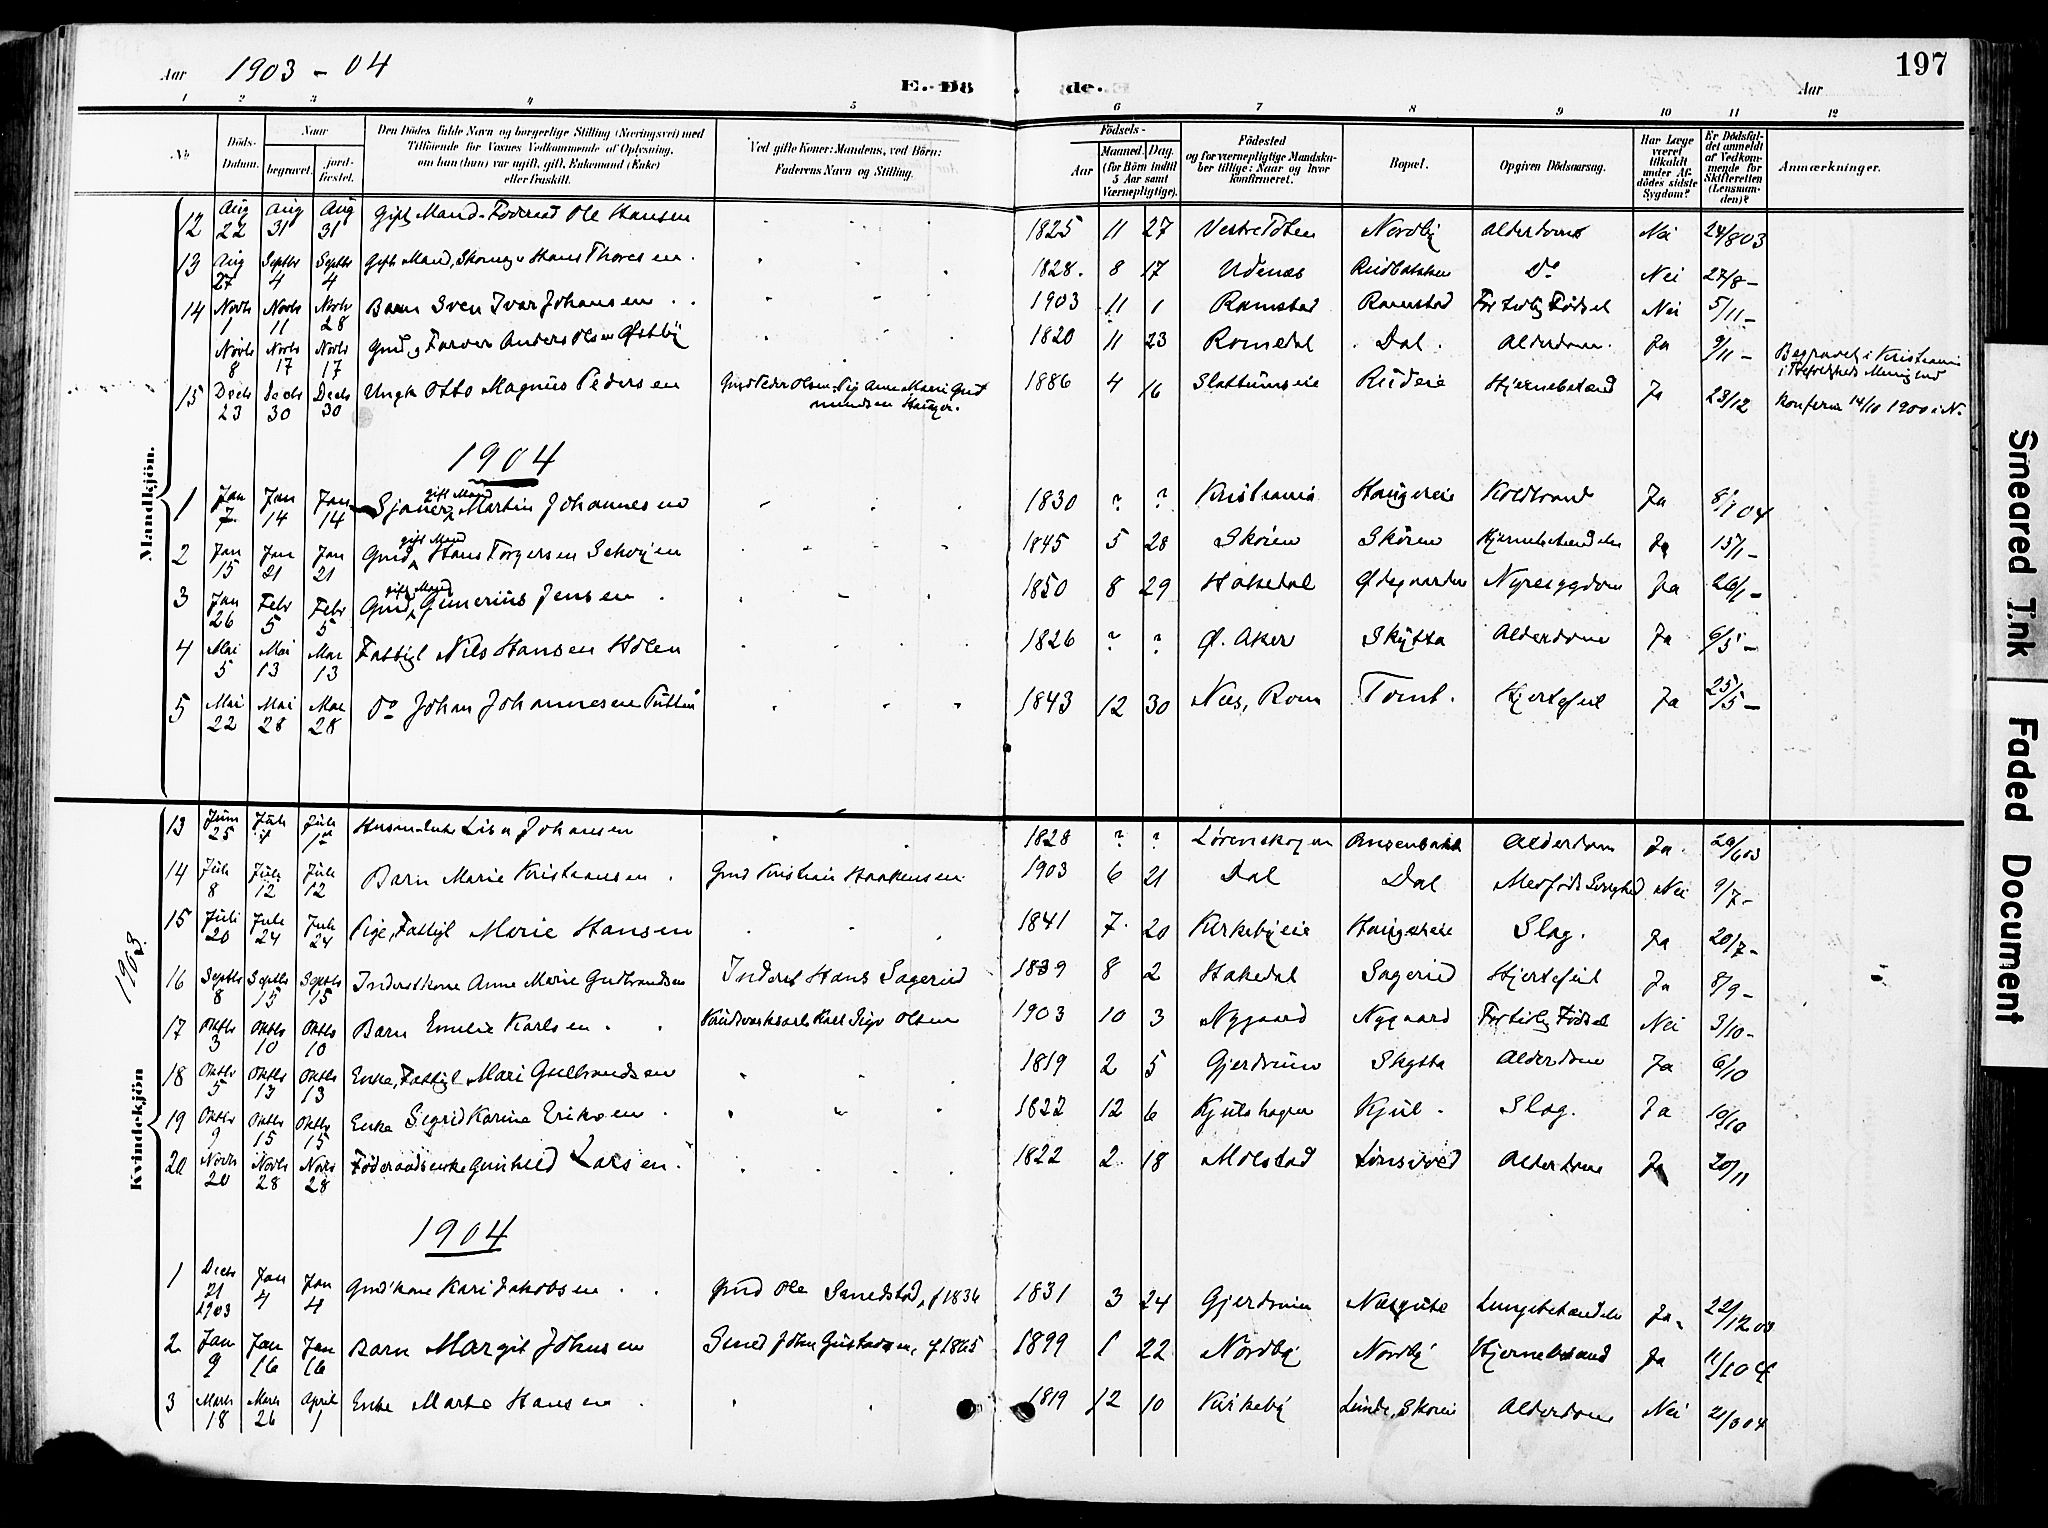 Aar 1903 - 04 E. Døde. Aar 197
1 2 3 4 5 6 7 8 9 10 11 12
No. Döds-Datum. Naar begravet. jordfæstet. Den Dödes fulde Navn og borgerlige Stilling (Næringsvei) med Tilföiende for Voxnes Vedkommende af Oplysning, om han (hun) var ugift, gift, Enkemand (Enke) eller fraskilt. Ved gifte Koner: Mandens, ved Börn: Faderens Navn og Stilling. Födsels- Aar Maaned. Dag. (for Börn indtil 5 Aar samt Værnepligtige). Födested og for værnepligtige Mandskaber tillige: Naar og hvor konfirmeret. Bopæl. Opgiven Dödsaarsag. Har Læge været tilkaldt under Afdödes sidste Sygdom? Er Dödsfaldet anmeldt af Vedkommende for Skifteretten (Lensmanden)? Anmærkninger.
Mandkjön.
12 Aug 22 Aug 31 Aug 31 Gift Mand. Föderaad Ole Hansen 1825 11 27 Vestre Toten Nordby Alderdoms Nei 24/8 03
13 Aug 27 Septbr 4 Septbr 4 Gift Mand, Skomag. Hans Thoresen 1828. 8 17 Udenæs Rudbakken Do Nei 27/8 -
14 Novb 1 Novb 11 Novb 28 Barn Sven Ivar Johansen 1903 11 1 Ramstad Ramstad For tidlig Födsel Nei 5/11 -
Novb 8 Novb 17 Novb 17 Gmd, Farver Anders Olsen Østby 1820 11 23 Romedal Dal. Alderdom. Ja 9/11 - Begravet i Kristiania
15 Decb 23 Decb 30 Decb 30 Ungk Otto Magnus Pedersen Gmd Peder Olsen, Pig Anne Marie Gudmundsen Hauger. 1886 4 16 Slattumseie Rudeie Hjernebetænd Ja 23/12 Konferm 14/10 1900 i N.
1904
1 Jan 7 Jan 14 Jan 14 Sjauer gift Mand Martin Johannesen 1830 ? ? Kristiania Haugereie Koldbrand Ja 8/1 04
2 Jan 15 Jan 21 Jan 21 Gmd gift Mand Hans Torgersen Schøyen 1845 5 28 Skøien Skøien Hjernebetændelse Ja 15/1 -
3 Jan 26 Febr 5 Febr 5 Gmd gift Mand Gunerius Jensen 1850 8 29 Hakedal Ødegaarden Nyresygdom Ja 26/1 -
4 Mai 5 Mai 13 Mai 13 Fattigl Nils Hansen Holen 1826 ? ? Ø. Aker Skytta Alderdom Ja 6/5 -
5 Mai 22 Mai 28 Mai 28 Do Johan Johannesen Putten 1843 12 30 Nes, Rom Tomt. Hjertefeil Ja 25/5 -
Kvindekjön 1903.
13 Juni 25 Juli Juli 1st Lisa Johansen 1828 ? ? Lørenskogen Alderdom Ja. 26/6 03
14 Juli 8 Juli 12 Juli 12 Barn Marie Kristiansen. Gmd Kristian Haakensen 1903 6 21 Dal Dal Medfødt Svaghed Nei 9/7 -
15 Juli 20 Juli 24 Juli 24 Pige, Fattigl Marie Hansen 1841 7 20 Kirkebyeie Haugereie Slag. Ja 20/7 -
16 Septb 8 Septb 15 Septb 15 Inderstkone Anne Marie Gudbrandsen Inderst Hans Sagerud 1839 8 2 Hakedal Sagerud Hjertefeil Ja 8/9 -
17 Oktb 3 Oktb 10 Oktb 10 Barn Emelie Karlsen. Olsen 1903 10 3 Nygaard Nygaard For tidlig Födsel Nei 3/10 -
18 Oktb 5 Oktb 13 Oktb 13 Enke, Fattigl Mari Gulbrandsen 1819 2 5 Gjerdrum Skytta Alderdom Ja 6/10
19 Oktb 9 Oktb 15 Oktb 15 Enke Sigrid Karine Eriksen. 1822 12 6 Kjulshagen Kjul. Slag. Ja 10/10
20 Novb 20 Novb 28 Novb 28 Føderaadsenke Gunhild Larsen. 1822 2 18 Molstad Alderdom Ja 20/11
1904
1 Decb 21 1903 Jan 4 Jan 4 Gmd'kone Kari Jakobsen. Gmd Ole Sandstad, f 1836 1831 3 24 Gjerdrum Lungebetændelse Ja. 22/12 03
2 Jan 9 Jan 16 Jan 16 Barn Margit Johnsen Smed John Gustavsen, f 1865 1899 1 22 Nordby Nordby Hjernebetænd Ja 11/1 04
3 Marts 18 Marts 26 April 1 Enke Marte Hansen. 1819 12 10 Kirkeby Linde, Skøien Alderdom Nei 21/3 04
Smeared Ink
Faded Document